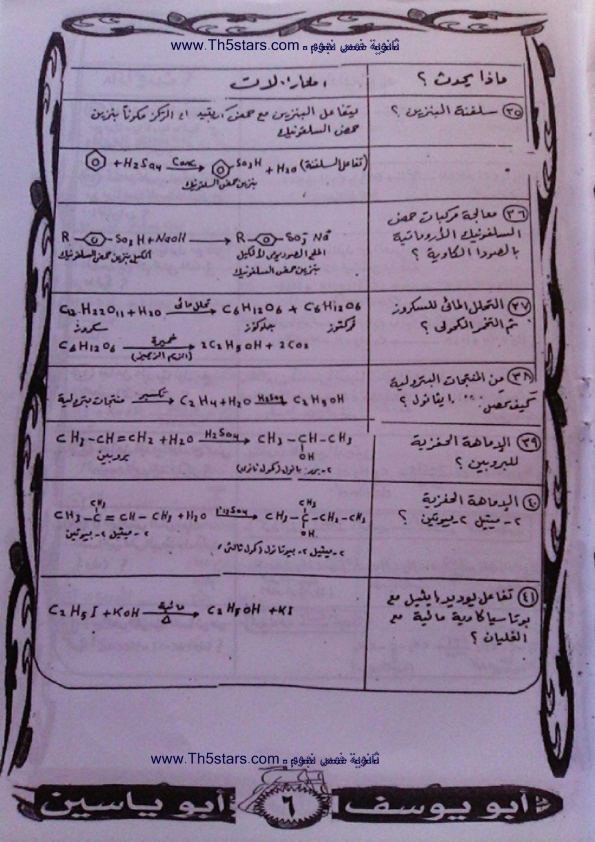 ثانوية خمس نجوم - www.Th5stars.com
ماذا يحدث ؟
المعادلات
٣٥ سلفنة البنزين ؟
يتفاعل البنزين مع حمض الكبريتيك المركز مكوناً بنزين
حمض السلفونيك
+ H2SO4 Conc → SO3H + H2O (تفاعل السلفنة)
بنزين حمض السلفونيك
٣٦ معالجة مركبات حمض
السلفونيك الأروماتية
بالصودا الكاوية ؟
R SO3H + NaOH → R SO3⁻ Na⁺
الكيل بنزين حمض السلفونيك
الملح الصوديومى لألكيل
بنزين حمض السلفونيك
٣٧ التحلل المائى للسكروز
ثم التخمر الكحولى ؟
C12H22O11 + H2O تحلل مائى → C6H12O6 + C6H12O6
سكروز جلوكوز فركتوز
C6H12O6 خميرة (انزيم الزيميز) → 2C2H5OH + 2CO2
٣٨ من المنتجات البترولية
كيف تحصل ايثانول ؟
منتجات بترولية تكسير → C2H4 + H2O H2SO4 → C2H5OH
٣٩ الإماهة الحفزية
للبروبين ؟
CH3-CH=CH2 + H2O H2SO4 → CH3-CH-CH3
OH
بروبين
٢- بروبانول (كحول ثانوى)
٤٠ الإماهة الحفزية
٢- ميثيل ٢- بيوتين ؟
CH3 CH3
CH3-C=CH-CH3 + H2O H2SO4 → CH3-C-CH2-CH3
OH
٢- ميثيل ٢- بيوتين
٢- ميثيل ٢- بيوتانول (كحول ثالثى)
٤١ تفاعل يوديد ايثيل مع
بوتاسيا كاوية مائية مع
الغليان ؟
C2H5I + KOH مائية Δ → C2H5OH + KI
ثانوية خمس نجوم - www.Th5stars.com
أبو يوسف ٦ أبو ياسين